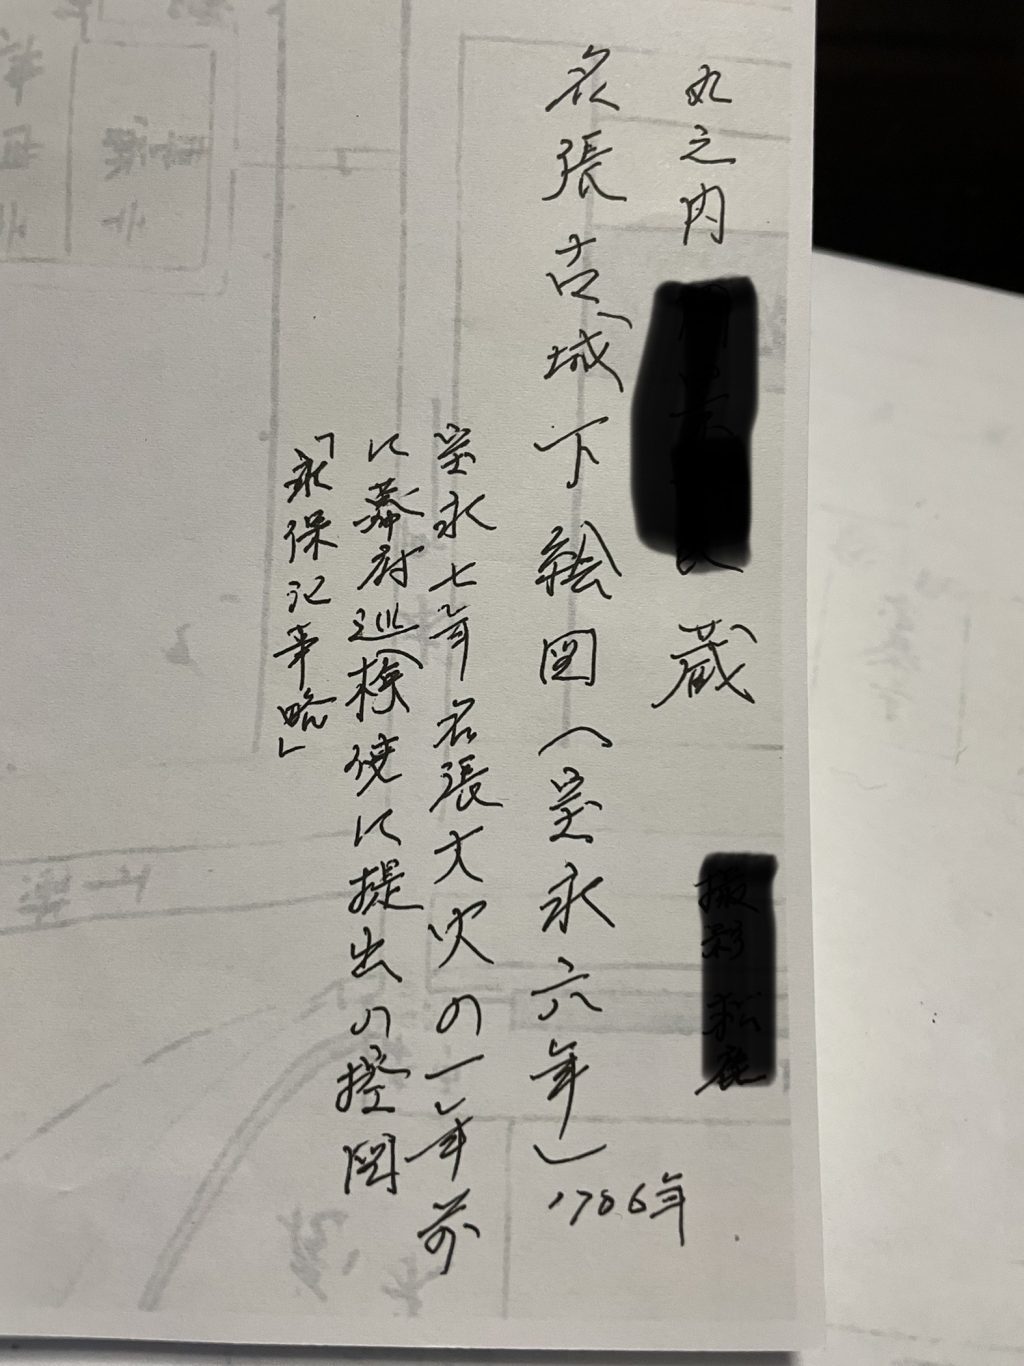 丸之内
蔵
名張古城下絵図(宝永六年)
1706年
宝永七年名張大火の一年前
に幕府巡検使に提出の控図
「永保記事略」